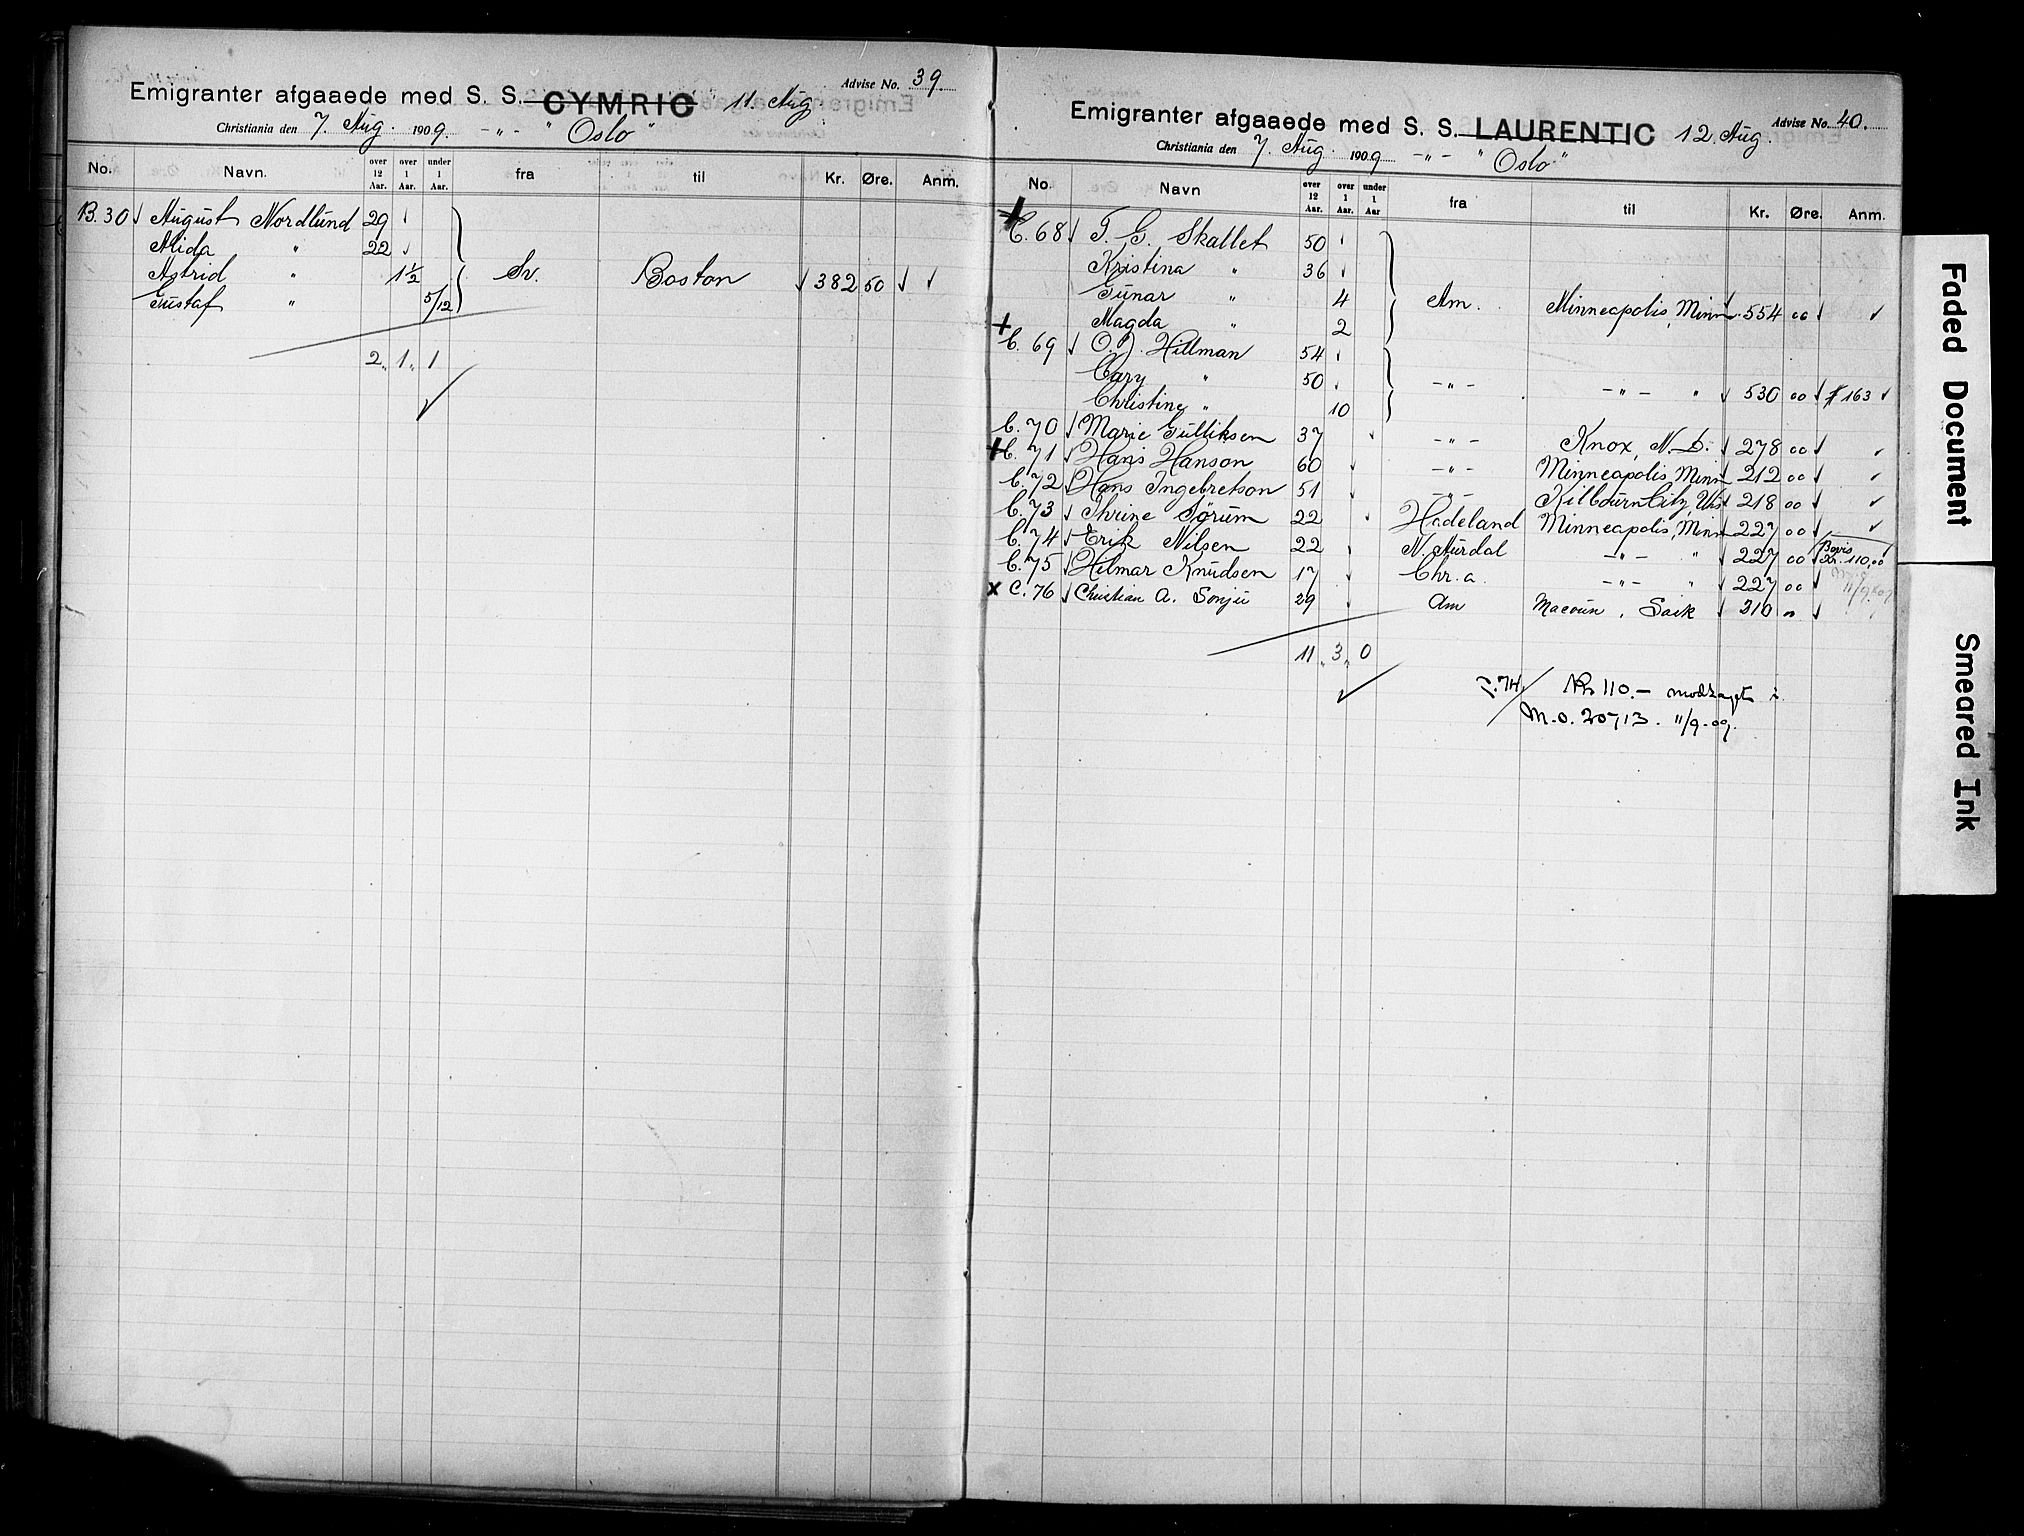 Advise No. 39
Emigranter afgaaede med S. S. CYMRIC 11. Aug
Christiania den 7. Aug. 1909. -"- "Oslo"
No. Navn. over 12 Aar. over 1 Aar. under 1 Aar. fra til Kr. Øre. Anm.
B. 30 August Nordlund 29
Alida " 22
Astrid " 1½ Sv. Boston 382 50
Gustaf " 5/12
2 " 1 " 1
Advise No. 40.
Emigranter afgaaede med S. S. LAURENTIC 12. Aug.
Christiania den 7. Aug. 1909 -"- "Oslo"
No. Navn over 12 Aar. over 1 Aar. under 1 Aar fra til Kr. Øre. Anm.
C. 68 T. G. Skallet 50
Kristina " 36
Gunar " 4 Am. Minneapolis, Minn. 554 00
Magda " 2
C. 69 O. J. Hillman 54
Cary " 50 -"- -"- " 530 00 163
Christine " 10
C. 70 Marie Gulliksen 37 -"- Knox, N. D. 278 00
C. 71 Hans Hanson 60 -"- Minneapolis, Minn 212 00
C. 72 Hans Ingebretson 51 -"- Kilbourn City, Wis 218 00
C. 73 Thrine Sørum 22 Hadeland Minneapolis, Minn 227 00
C. 74 Erik Nilsen 22 N. Aurdal -"- " 227 00 Bevis Kr. 110,00
C. 75 Hilmar Knudsen 17 Chr.a. -"- " 227 00 11/9 09
x C. 76 Christian A. Sonju 29 Am Macoun, Sask 310 00
11 " 3 " 0
C. 74 Kr 110.— modtaget i
M.O. 20713. 11/9-09.
Faded Document
Smeared Ink